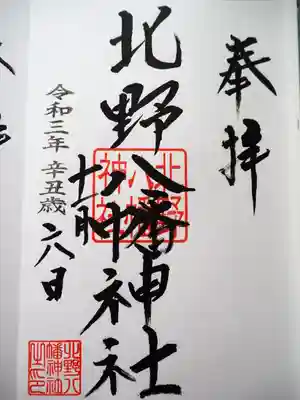 奉拝
北野八幡神社
北野
八幡
神社
令和三年 辛丑歳
日
北野八
幡神社
之印